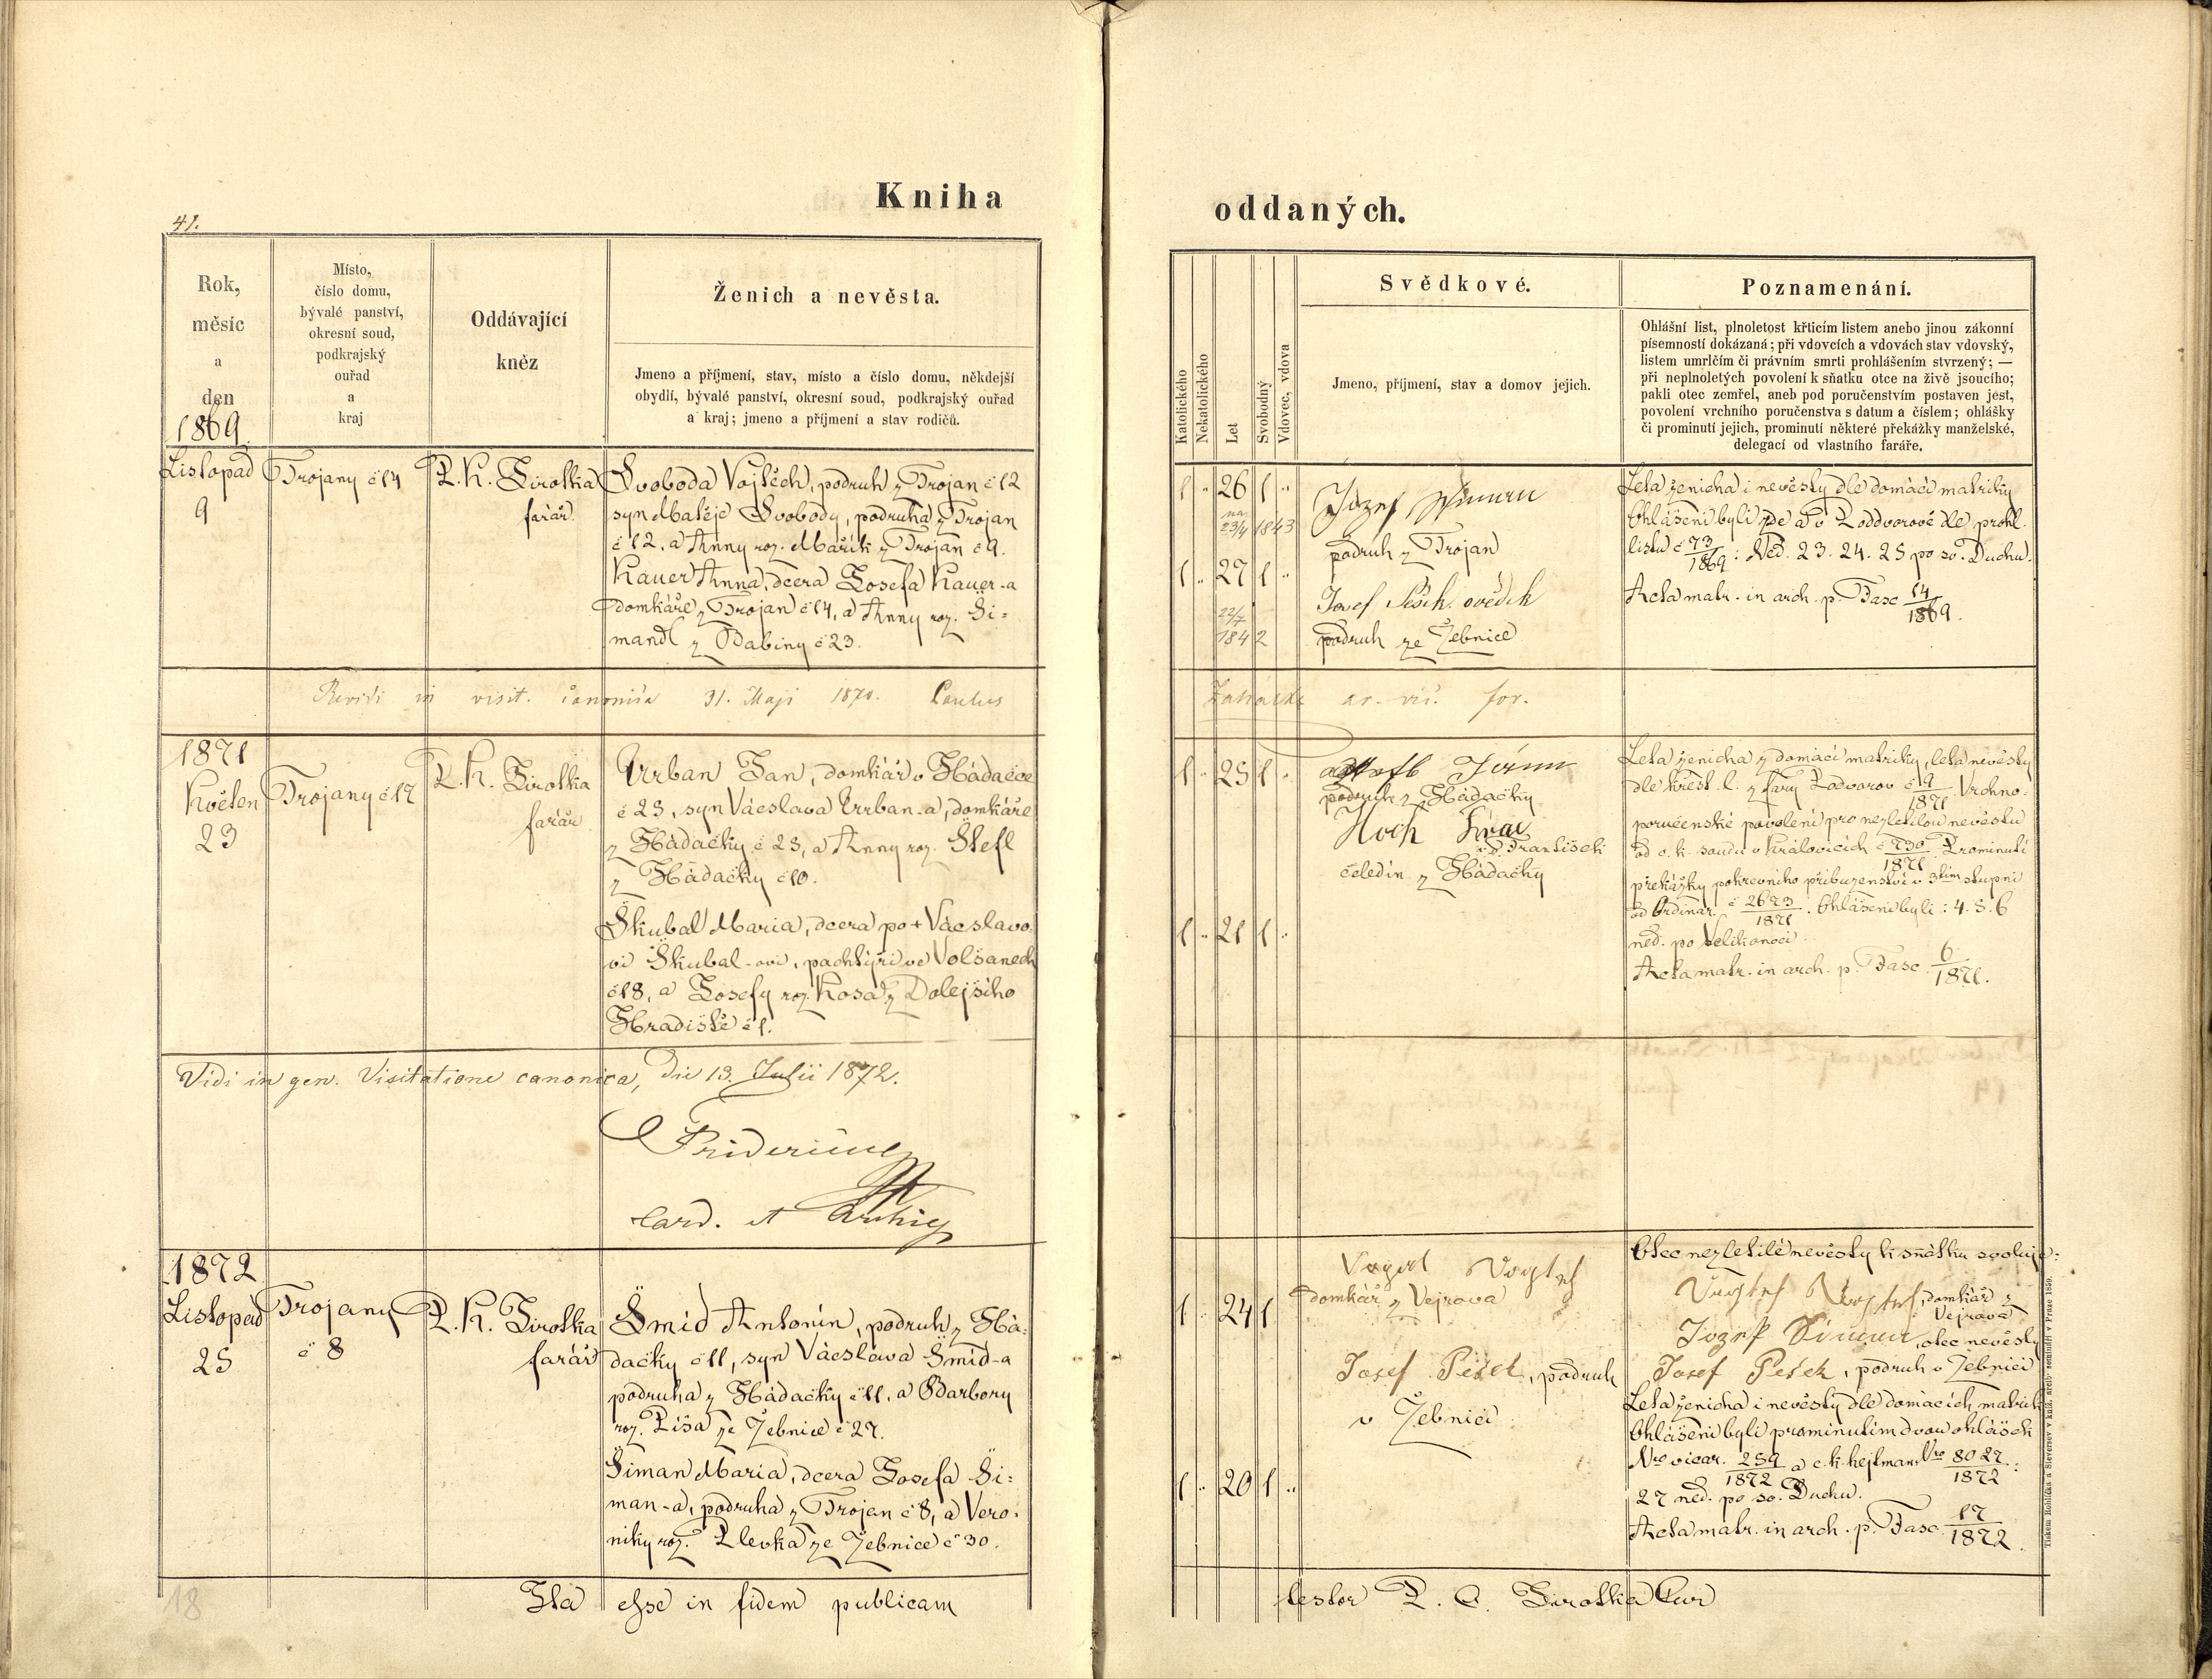 Kniha
41.
Rok,
měsíc
a
den
1869
Místo,
číslo domu,
bývalé panství,
okresní soud,
podkrajský
ouřad
a
kraj
Oddávající
kněz
Ženich a nevěsta.
Jmeno a příjmení, stav, místo a číslo domu, někdejší
obydlí, bývalé panství, okresní soud, podkrajský ouřad
a kraj; jmeno a příjmení a stav rodičů.
Listopad
9
Trojany č 14
P. K. Sirotka
farář
Svoboda Vojtěch, podruh z Trojan č 12
syn Matěje Svobody, podruha z Trojan
č 12, a Anny roz. Mařík z Trojan č 9.
Kauer Anna, dcera Josefa Kauer-a
domkáře z Trojan č 14, a Anny roz. Ši=
mandl z Babiny č 23.
Revidi in visit. canonica 31. Maji 1870.
1871
Květen
23
Trojany č 17
P. K. Sirotka
farář
Urban Jan, domkář v Hádačce
č 23, syn Václava Urban-a, domkáře
z Hádačky č 23, a Anny roz. Štefl
z Hádačky č 10.
Škubal Maria, dcera po + Václavo
vi Škubal-ovi, pachtýři ve Volšanech
č 18, a Josefy roz. Kosa z Dolejšího
Hradiště č 1.
Vidi in gen. Visitatione canonica, die 13. Julii 1872.
Fridericus
Card. et
1872
Listopad
25
Trojany
č 8
P. K. Sirotka
farář
Šmíd Antonín, podruh z Há=
dačky č 11, syn Václava Šmíd-a
podruha z Hádačky č 11, a Barbory
roz. Líša ze Žebnice č 27.
Šiman Maria, dcera Josefa Ši=
man-a, podruha z Trojan č 8, a Vero=
niky roz. Plevka ze Žebnice č 30.
18
Ita esse in fidem publicam
oddaných.
Katolického
Nekatolického
Let
Svobodný
Vdovec, vdova
Svědkové.
Jmeno, příjmení, stav a domov jejich.
Poznamenání.
Ohlášní list, plnoletost křticím listem anebo jinou zákonní
písemností dokázaná; při vdovcích a vdovách stav vdovský,
listem umrlčím či právním smrti prohlášením stvrzený; —
při neplnoletých povolení k sňatku otce na živě jsoucího;
pakli otec zemřel, aneb pod poručenstvím postaven jest,
povolení vrchního poručenstva s datum a číslem; ohlášky
či prominutí jejich, prominutí některé překážky manželské,
delegací od vlastního faráře.
1 " 26 1 "
23/4 1843
1 " 27 1 "
22/7
1842
Jozef
podruh z Trojan
Josef Pešek svědek
podruh ze Žebnice
Leta ženicha i nevěsty dle domácí matriky
Ohlášeni byli zde a v Poddvorově dle prohl.
listu č 73/1869: Ned. 23. 24. 25 po sv. Duchu.
Acta matr. in arch. p. Fasc 14/1869.
Zahálka
for.
1 " 25 1 "
1 " 21 1 "
podruh z Hádačky
Hoch
František
čeledín z Hádačky
Leta ženicha z domácí matriky, leta nevěsty
dle křest. l. z fary Podvorov č 19/1871. Vrchno=
poručenské povolení pro nezletilou nevěstu
od c. k. soudu v Kralovicích č 730/1871. Prominutí
překážky pokrevního příbuzenství v 3tím stupni
od Ordinar. č 2673/1871. Ohlášeni byli: 4. 5. 6
ned. po Velikonoci.
Acta matr. in arch. p. Fasc. 6/1871.
1 " 24 1
1 " 20 1 "
domkář z Vejrova
Josef Pešek, podruh
v Žebnici
Otec nezletilé nevěsty k sňatku svoluje:
domkář z
Vejrova
Jozef Šiman, otec nevěsty
Josef Pešek, podruh v Žebnici
Leta ženicha i nevěsty dle domácích matrik
Ohlášeni byli prominutím dvou ohlášek
Nro vicar. 259/1872 a c. k. hejtman. Nro 8027/1872:
27 ned. po sv. Duchu.
Acta matr. in arch. p. Fasc. 17/1872.
testor P. C. Sirotka Cur